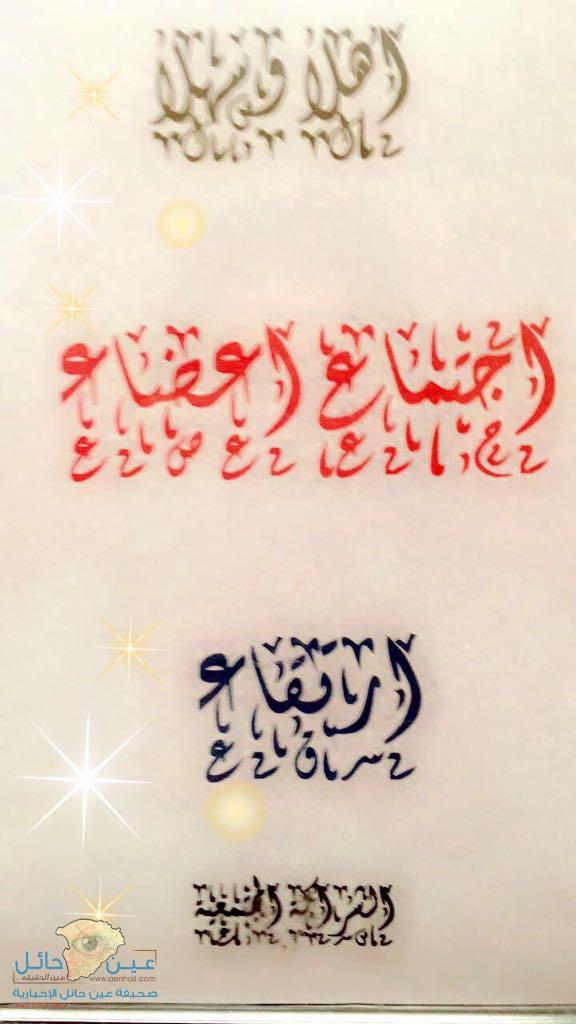 اهلا وسهلا
اجتماع اعضاء
ارتقاء
الشراكة المجتمعية
عين حائل
عين الحقيقه
www.aenhail.com
صحيفة عين حائل الإخبارية